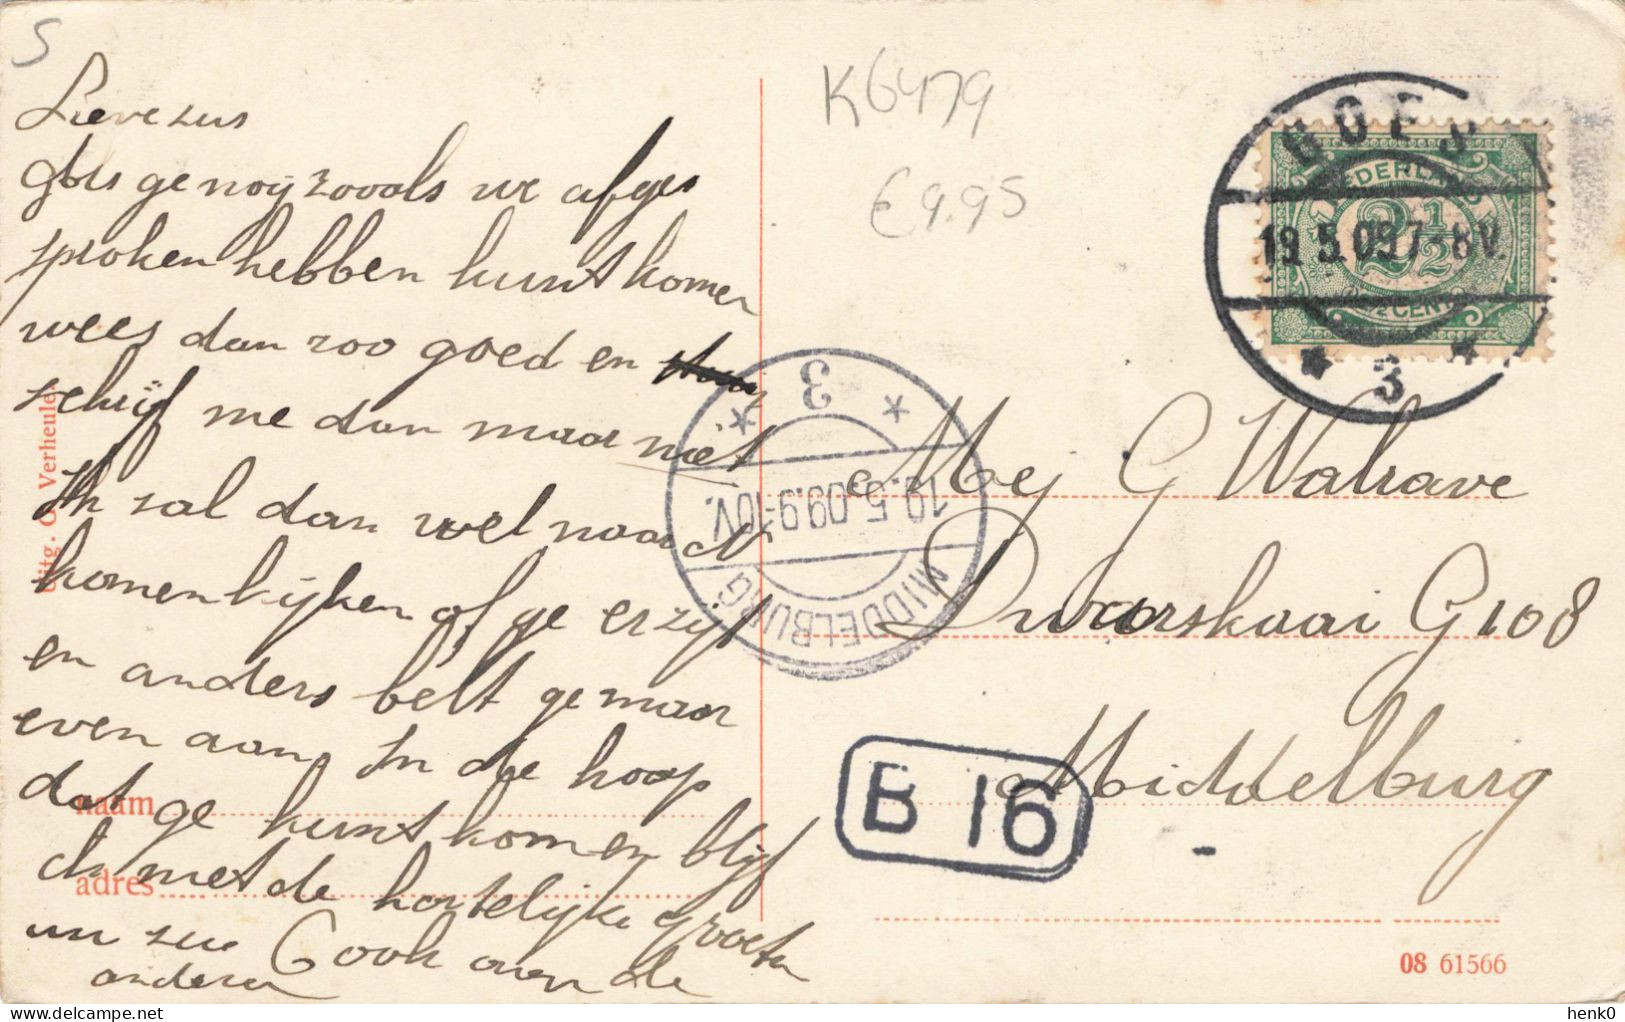 S
Lieve zus
Als ge nog zooals we afges
sproken hebben kunt komen
wees dan zoo goed en
schrijf me dan maar niet
Ik zal dan wel naar
komen kijken of ge er zijt
en anders belt ge maar
even aan. In de hoop
dat ge kunt komen blijf
ik met de hartelijke groeten
uw zus Cook
anderen
naam
adres
Uitg. G. Verheule
K6479
€ 9.95
GOES
19.5.09.7-8V.
3
NEDERLAND
2 1/2
2 1/2 CENT
3
19.5.09.9-10V.
MIDDELBURG
Mej G Walrave
Dwarskaai G 108
Middelburg
B 16
08 61566
henk0